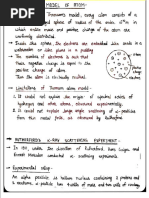 MODEL OF ATOM:-
Thomson's model, every atom consists of a
charged sphere of radius of the order 10⁻¹⁰ m in
which entire mass and positive charge of the atom are
uniformly distributed.
→ Inside the sphere, the electrons are embedded like seeds in a
watermelon or like plums in a pudding.
→ The number of electrons is such that
their negative charge is equal to the
positive charge of atom.
Thus the atom is electrically neutral.
→ Limitations of Thomson atom model:-
→ It could not explain the origin of spectral series of
hydrogen and other atoms, observed experimentally.
→ It could not explain large angle scattering of
α-particles
→ RUTHERFORD'S α-RAY SCATTERING EXPERIMENT:-
→ In 1911, under the direction of Rutherford, Hans Geiger and
Ernest marsden conducted α-scattering experiments.
→ Experimental setup:-
→ An alpha particle is helium nucleus containing 2 protons and
2 neutrons. α-particle has 4 units of mass and two units of